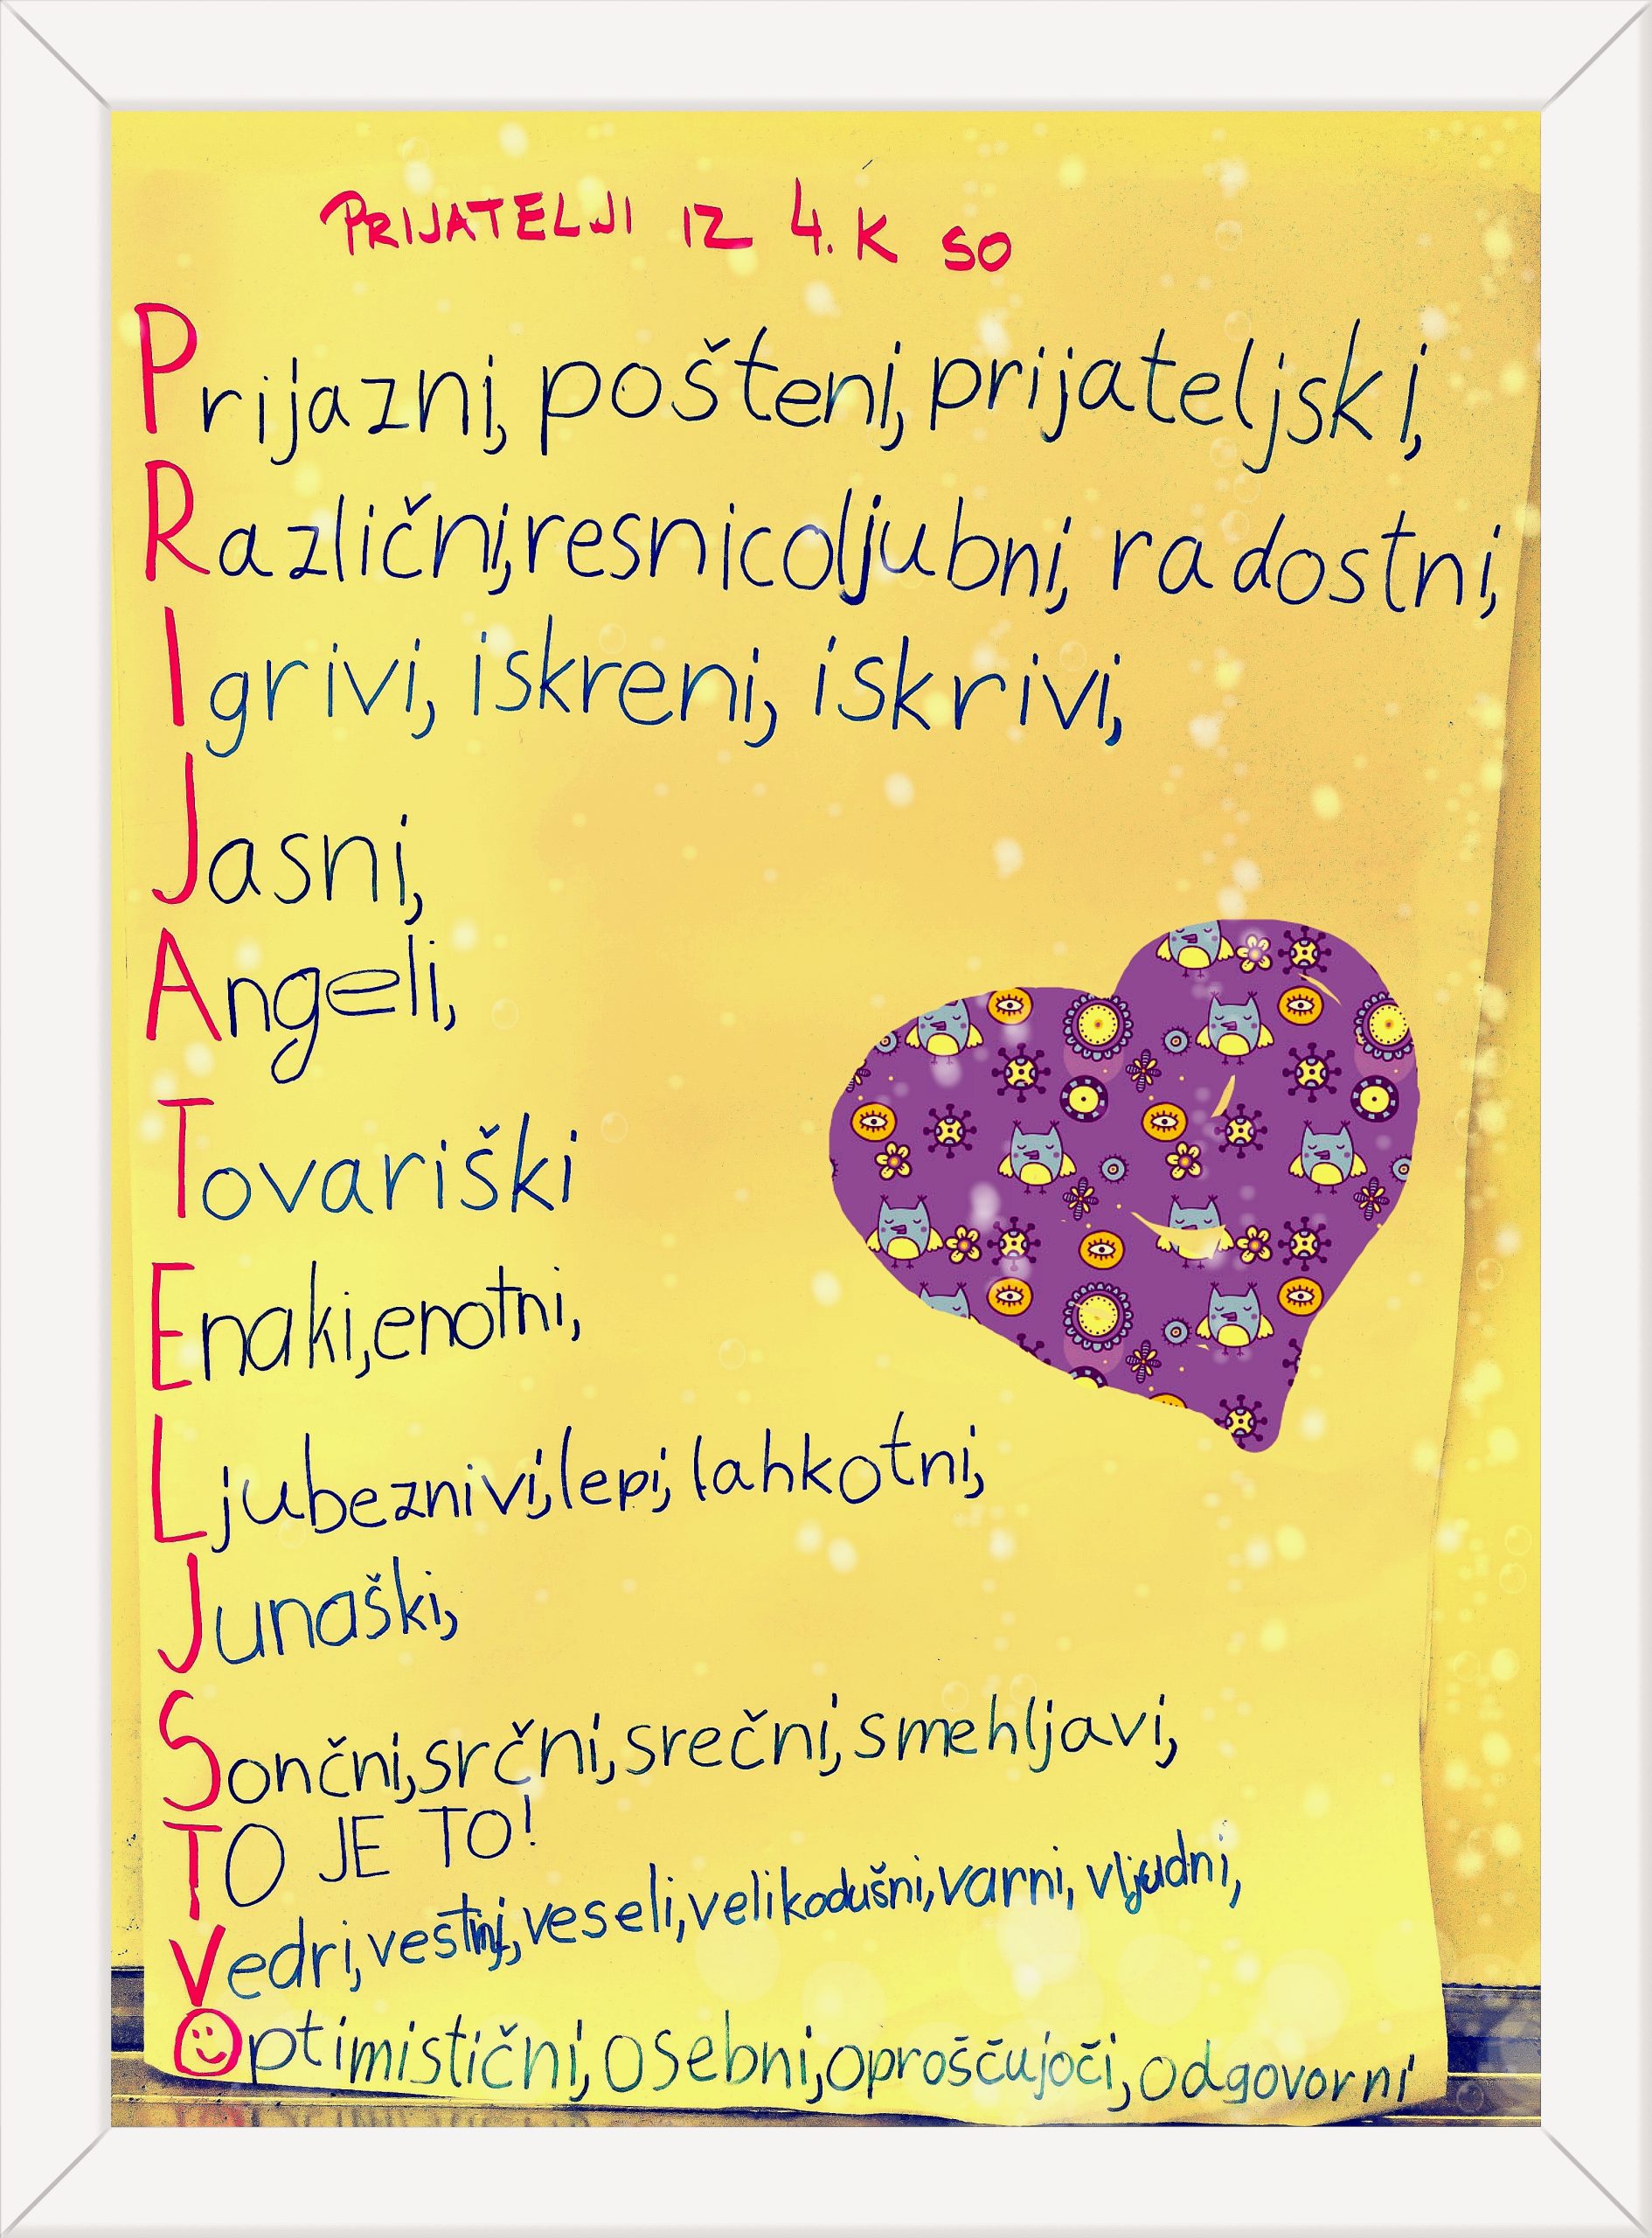 PRIJATELJI IZ 4. K SO
Prijazni, pošteni, prijateljski,
Različni, resnicoljubni, radostni,
Igrivi, iskreni, iskrivi,
Jasni,
Angeli,
Tovariški
Enaki, enotni,
Ljubeznivi, lepi, lahkotni,
Junaški,
Sončni, srčni, srečni, smehljavi,
TO JE TO!
Vedri, vestni, veseli, velikodušni, varni, vljudni,
Optimistični, osebni, oproščujoči, odgovorni